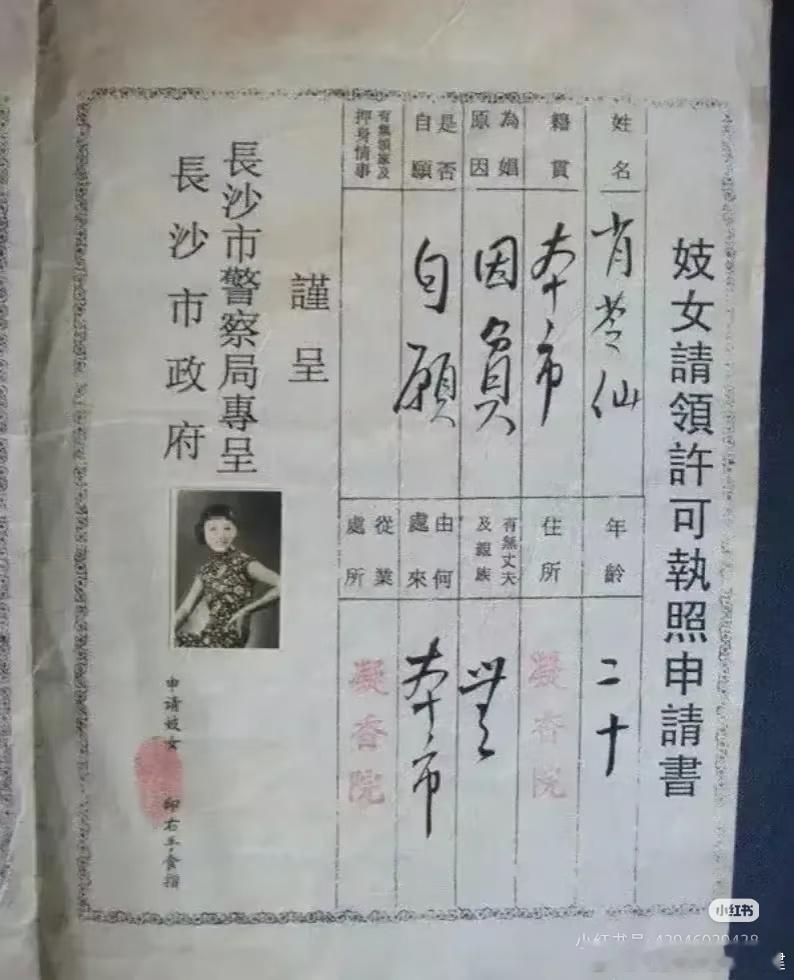 妓女請領許可執照申請書
姓名
肖苓仙
年齡
二十
籍貫
本市
住所
凝香院
為娼
原因
因
有無丈夫
及親族
無
是否
自願
自願
由何
處來
本市
有無領家及
押身情事
從業
處所
凝香院
謹呈
長沙市警察局專呈
長沙市政府
申请妓女
印右手食指
小红书
小红书号: